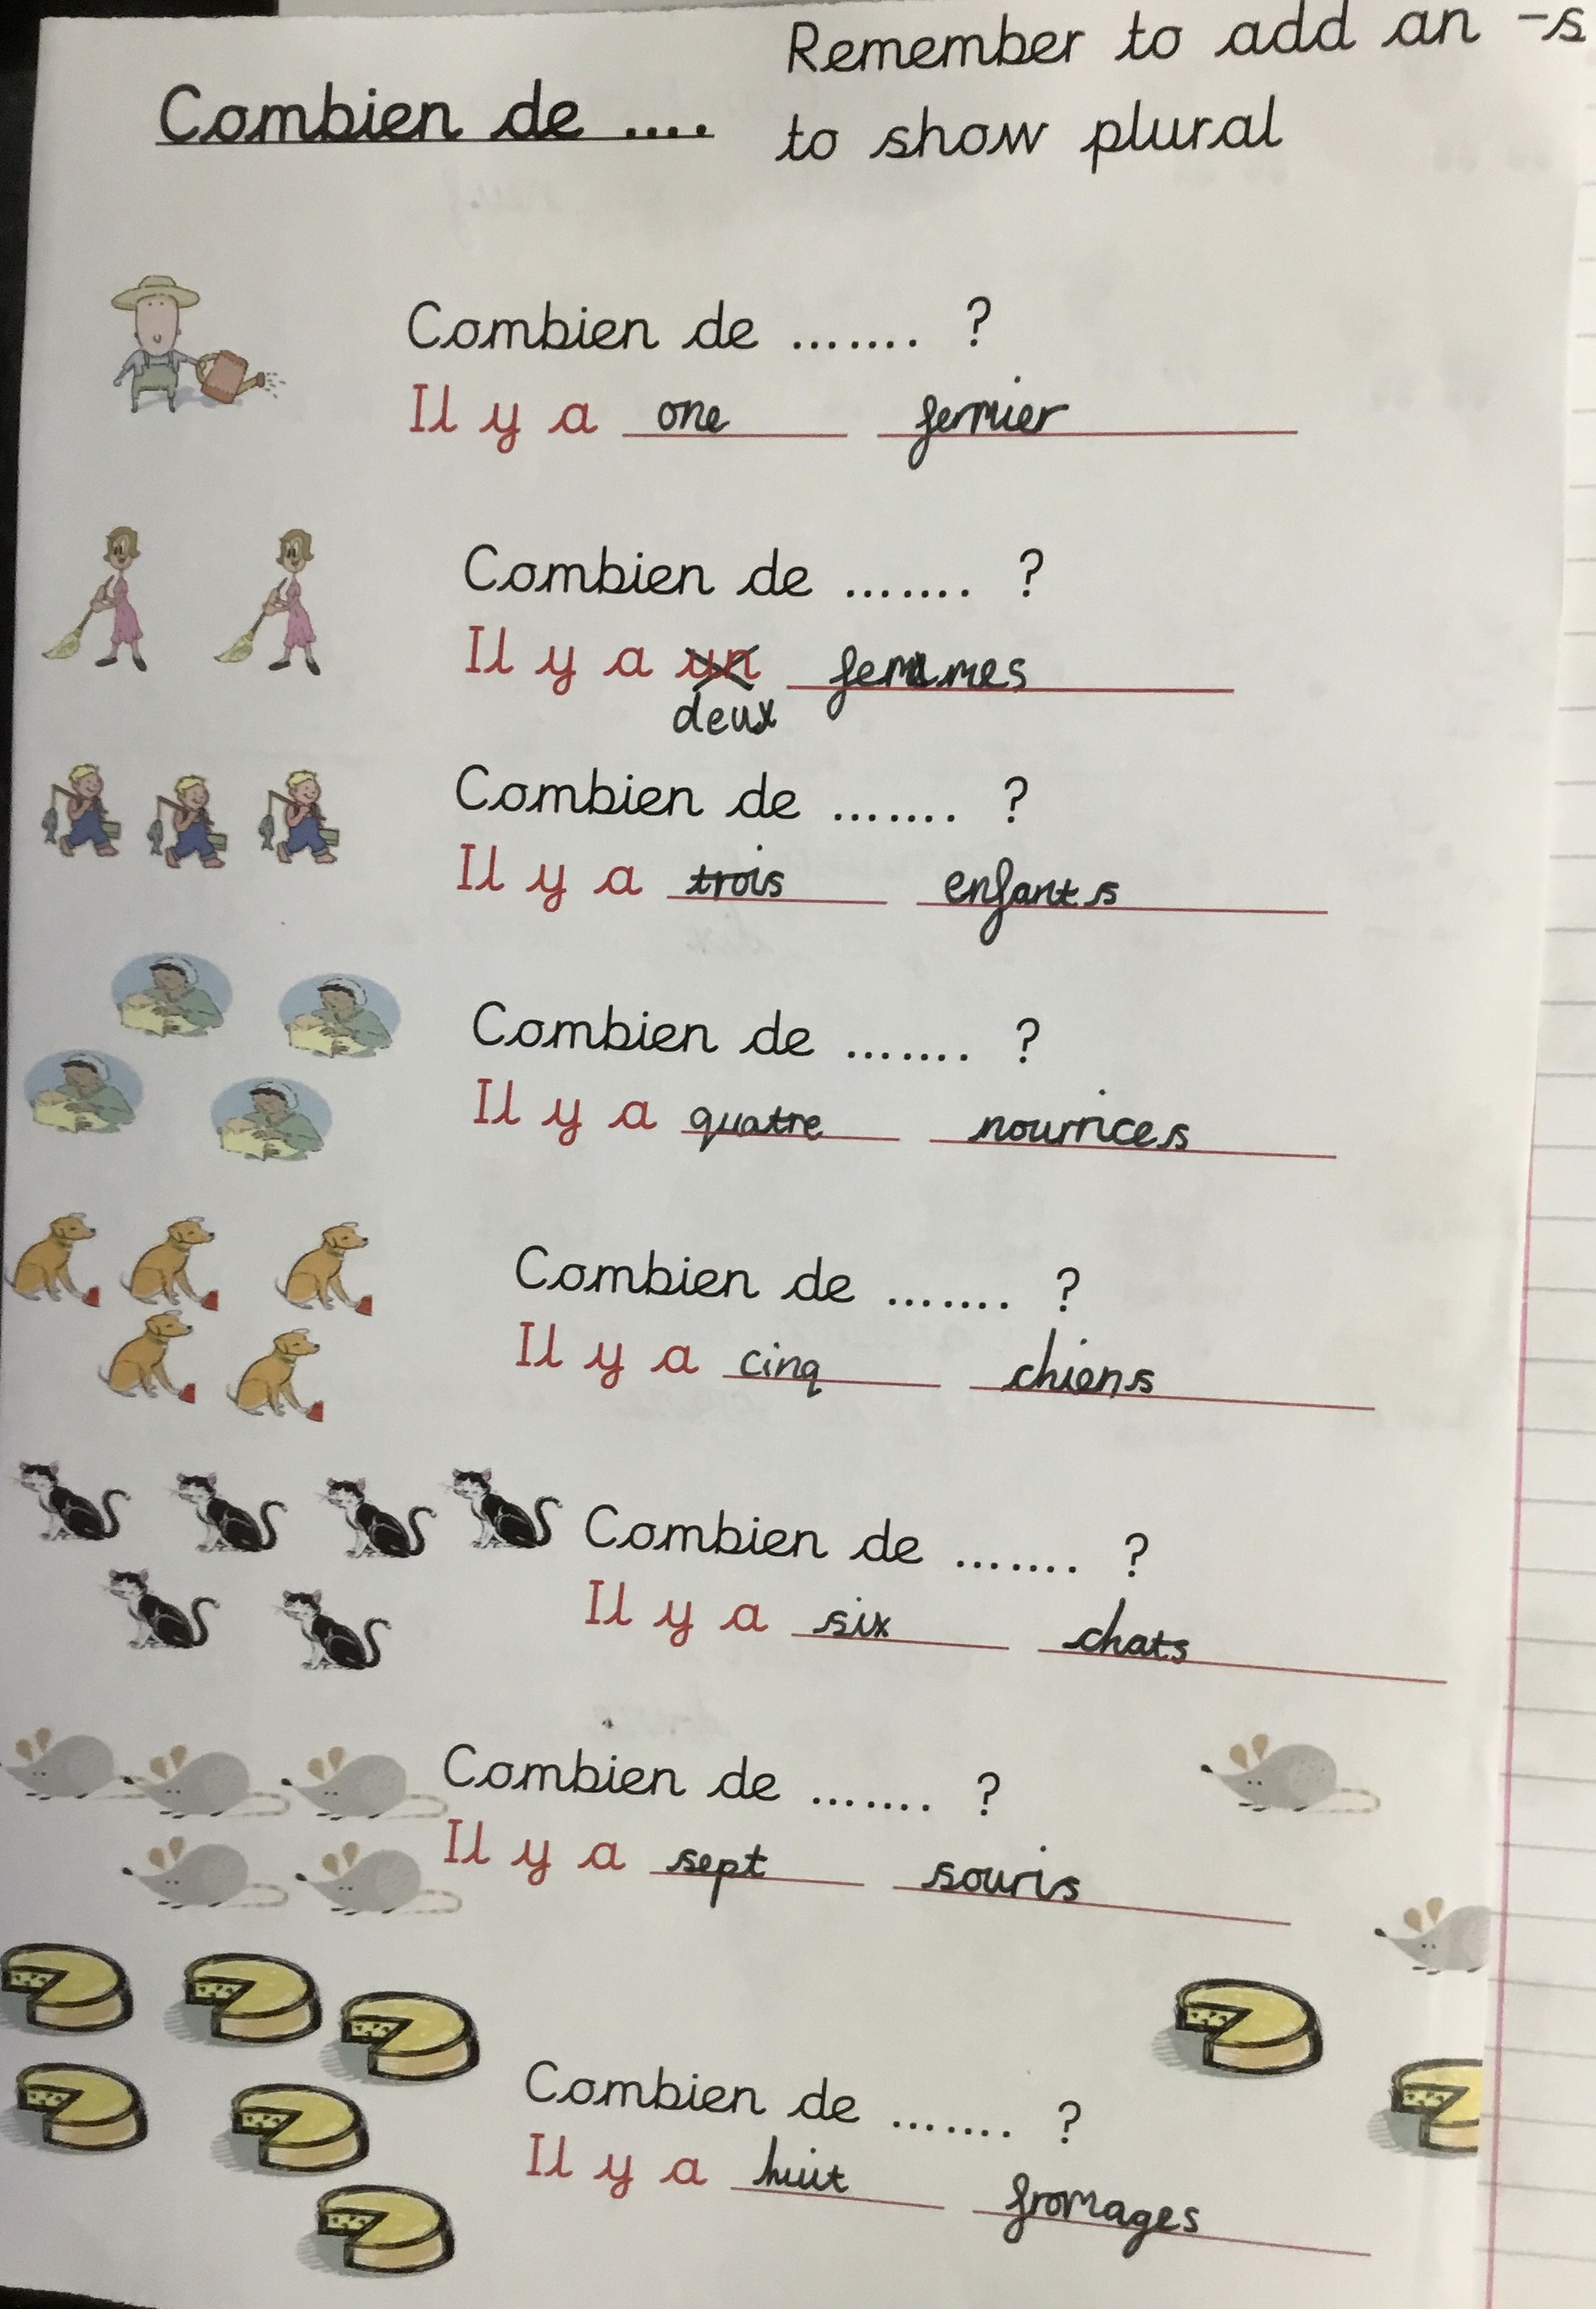 Remember to add an -s
Combien de ....
to show plural
Combien de ....... ?
Il y a one fermier
Combien de ....... ?
Il y a un femmes
deux
Combien de ....... ?
Il y a trois enfants
Combien de ....... ?
Il y a quatre nourrices
Combien de ....... ?
Il y a cinq chiens
Combien de ....... ?
Il y a six chats
Combien de ....... ?
Il y a sept souris
Combien de ....... ?
Il y a huit fromages